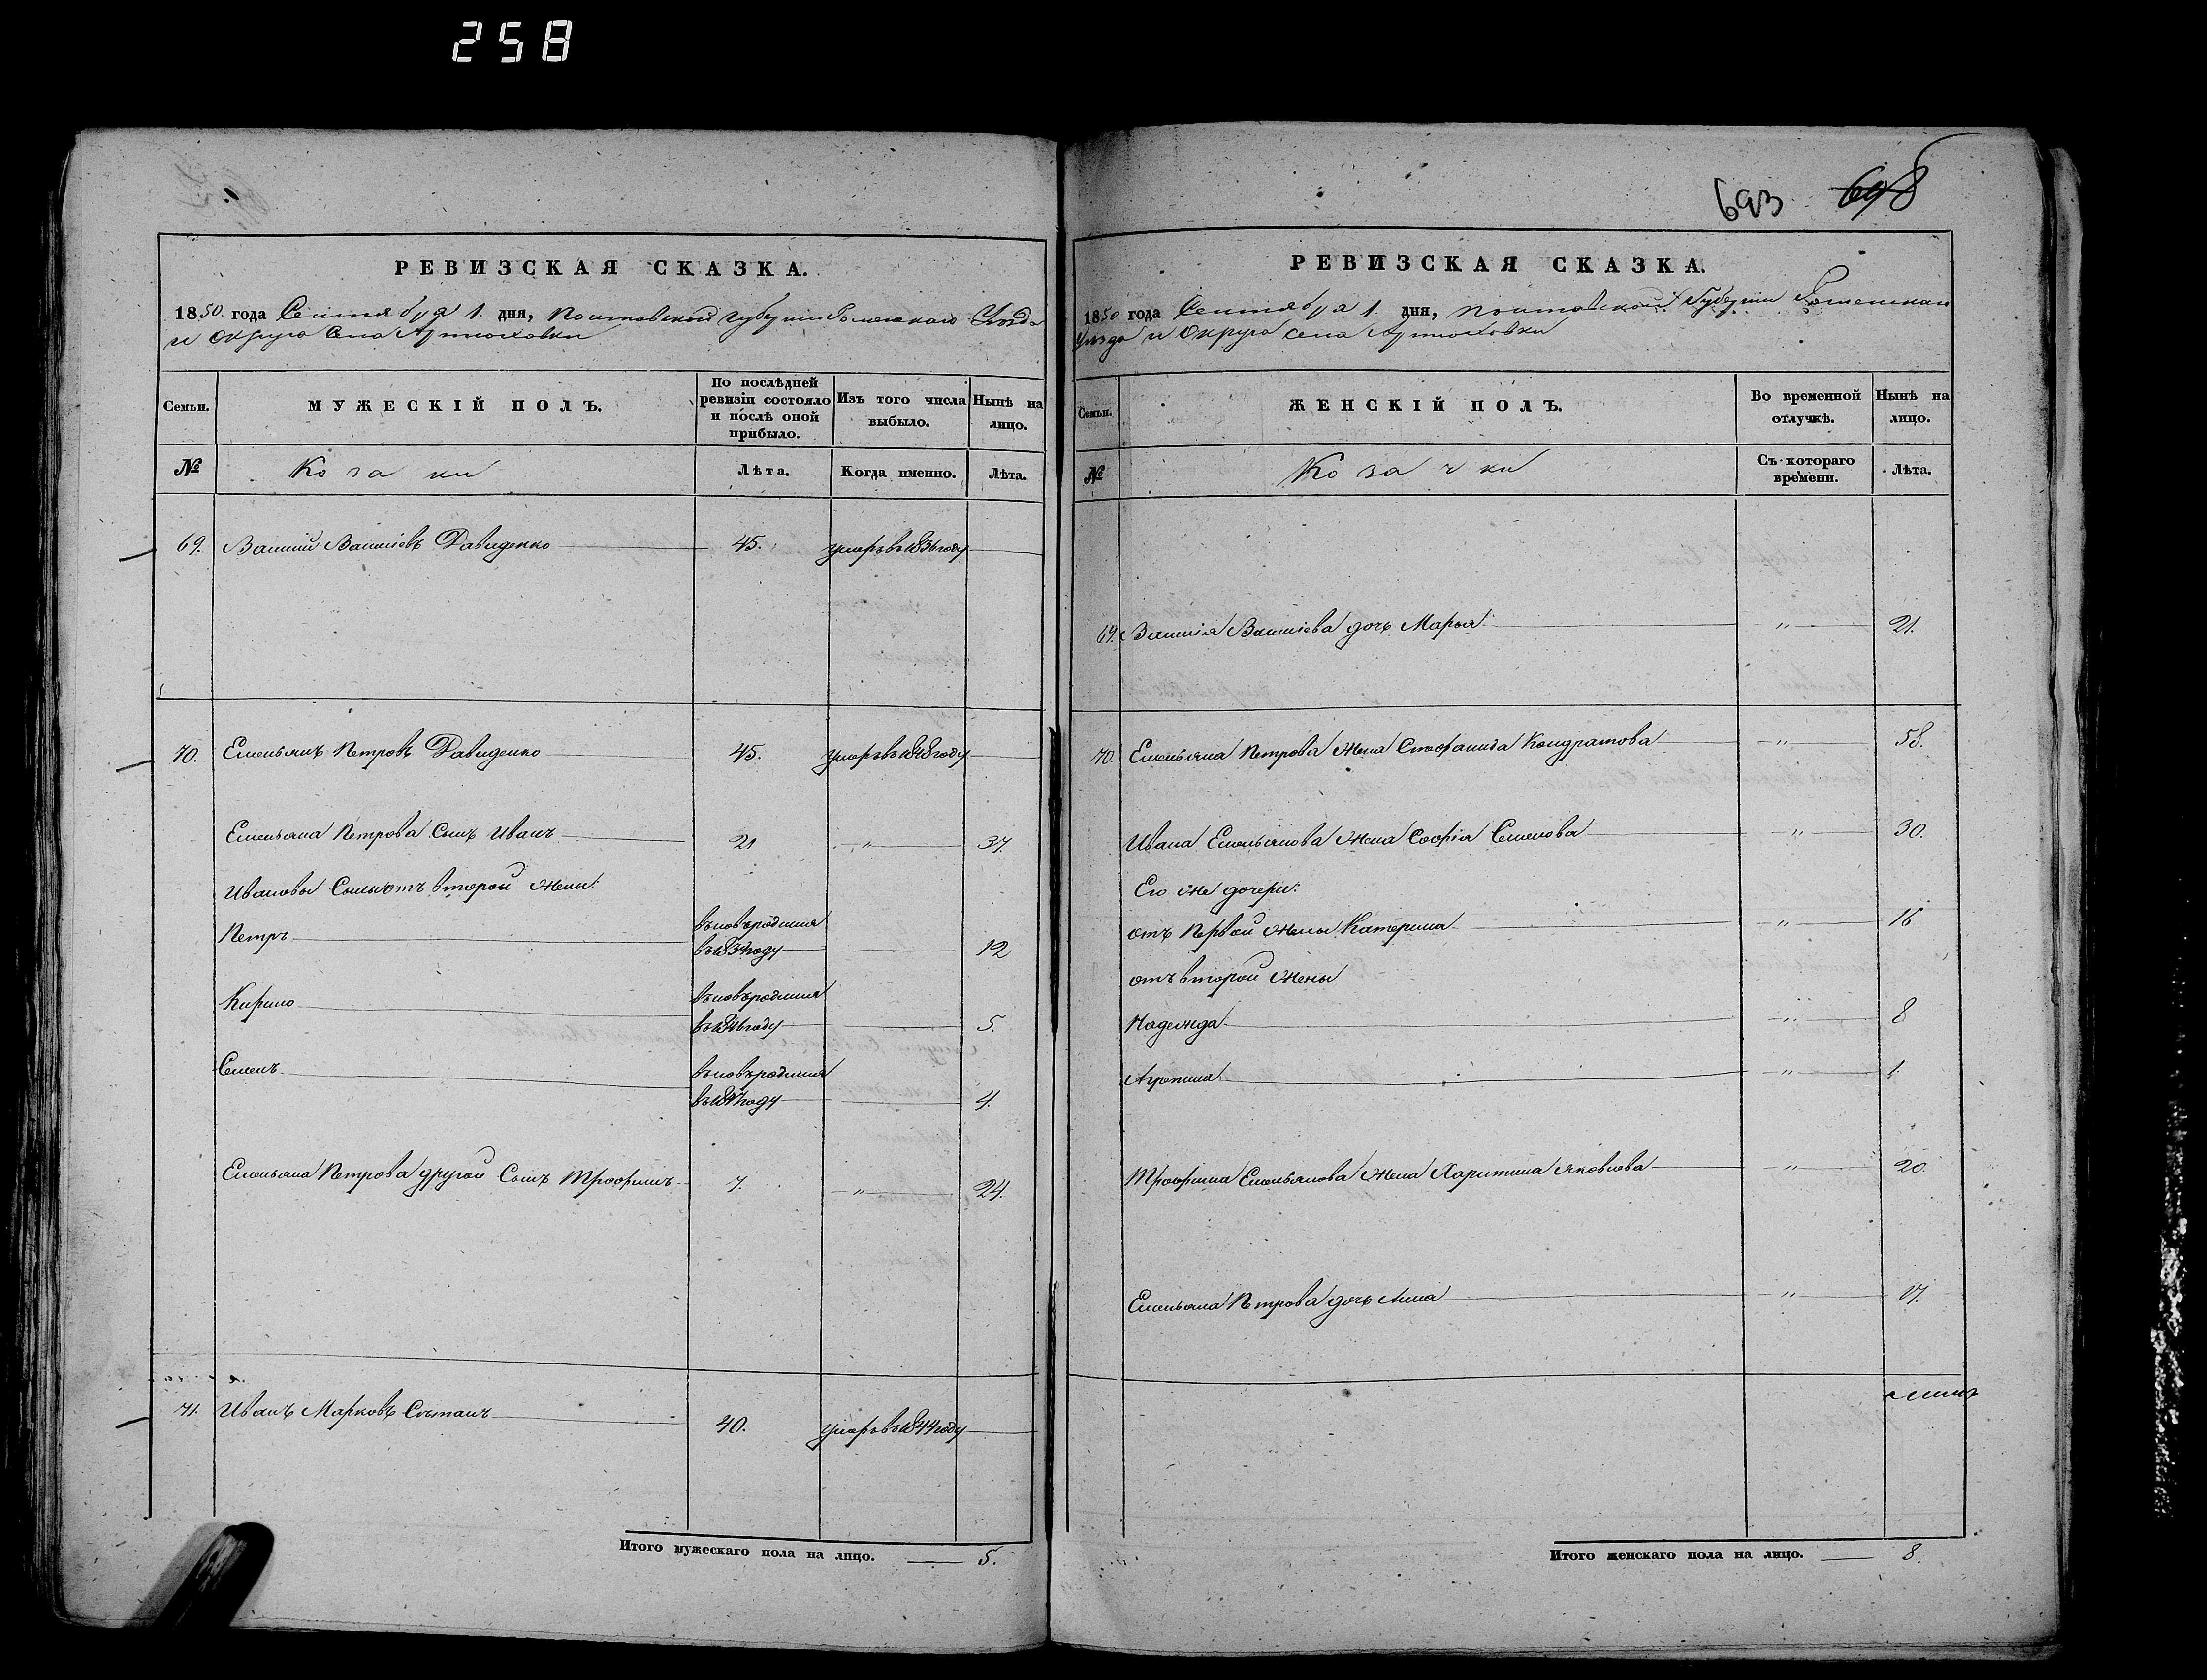 258
693 698
РЕВИЗСКАЯ СКАЗКА.
1850 года Сентября 1. дня, Полтавской губернии Роменскаго Уезда
и Округа Села Артюховки
Семьи.
МУЖЕСКІЙ ПОЛЪ.
По послѣдней ревизіи состояло и послѣ оной прибыло.
Изъ того числа выбыло.
Нынѣ на лицо.
№
Козаки
Лѣта.
Когда именно.
Лѣта.
69. Василій Васильевъ Давиденко 45. умеръ въ 1836 году
70. Емельянъ Петровъ Давиденко 45. умеръ въ 1848 году
Емельяна Петрова Сынъ Иванъ 21 " 37.
Ивановы Сыны отъ второй жены:
Петръ вновь родился
въ 1834 году 12
Кирило вновь родился
въ 1846 году 5.
Семенъ вновь родился
въ 1847 году 4.
Емельяна Петрова другой Сынъ Трофимъ 7. " 24.
71. Иванъ Марковъ 40. умеръ въ 1844 году
Итого мужескаго пола на лицо. 5.
РЕВИЗСКАЯ СКАЗКА.
1850 года Сентября 1. дня, Полтавской Губернии Роменскаго
Уезда и Округа села Артюховки
Семьи.
ЖЕНСКІЙ ПОЛЪ.
Во временной отлучкѣ.
Нынѣ на лицо.
№
Козачки
Съ котораго времени.
Лѣта.
69. Василія Васильева дочь Марья " 21.
70. Емельяна Петрова жена Стефанида Кондратова " 58.
Ивана Емельянова жена Софія Семенова " 30.
Его же дочери:
отъ Первой жены Катерина " 16
отъ второй жены
Надежда " 8
Агрепина " 1.
Трофима Емельянова жена Харитина Яковлева " 20.
Емельяна Петрова дочь Анна " 17.
Итого женскаго пола на лицо. 8.